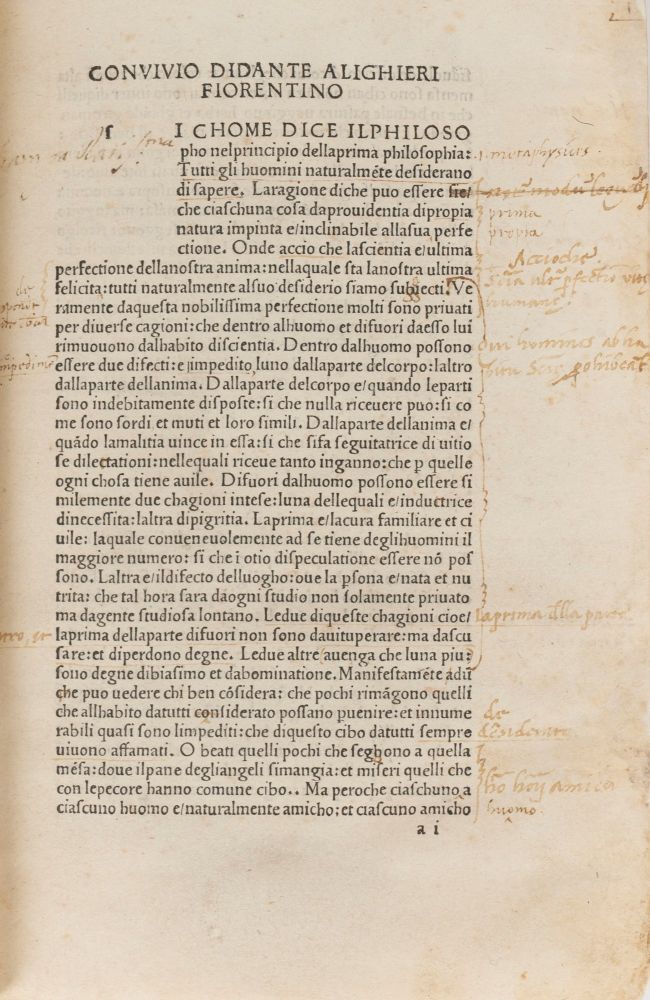 CONVIVIO DIDANTE ALIGHIERI
FIORENTINO
ſ
I CHOME DICE ILPHILOSO
pho nelprincipio dellaprima philoſophia:
Tutti gli huomini naturalmēte deſiderano
di ſapere. Laragione diche puo eſſere ſie/
che ciaſchuna coſa daprouidentia dipropia
natura impinta e/inclinabile allaſua perfe
ctione. Onde accio che laſcientia e/ultima
perfectione dellanoſtra anima: nellaquale ſta lanoſtra ultima
felicita: tutti naturalmente alſuo deſiderio ſiamo ſubiecti. Ve
ramente daqueſta nobiliſſima perfectione molti ſono priuati
per diuerſe cagioni: che dentro alhuomo et difuori daeſſo lui
rimuouono dalhabito diſcientia. Dentro dalhuomo poſſono
eſſere due difecti: e impedito luno dallaparte delcorpo: laltro
dallaparte dellanima. Dallaparte delcorpo e/quando leparti
ſono indebitamente diſpoſte: ſi che nulla riceuere puo: ſi co
me ſono ſordi et muti et loro ſimili. Dallaparte dellanima e/
quādo lamalitia uince in eſſa: ſi che ſifa ſeguitatrice di uitio
ſe dilectationi: nellequali riceue tanto inganno: che p quelle
ogni choſa tiene auile. Difuori dalhuomo poſſono eſſere ſi
milemente due chagioni inteſe: luna dellequali e/inductrice
dineceſſita: laltra dipigritia. Laprima e/lacura familiare et ci
uile: laquale conueneuolemente ad ſe tiene deglihuomini il
maggiore numero: ſi che i otio diſpeculatione eſſere nō poſ
ſono. Laltra e/ildifecto delluogho: oue la pſona e/nata et nu
trita: che tal hora ſara daogni ſtudio non ſolamente priuato
ma dagente ſtudioſa lontano. Ledue diqueſte chagioni cioe/
laprima dellaparte difuori non ſono dauituperare: ma daſcu
ſare: et diperdono degne. Ledue altre auenga che luna piu:
ſono degne dibiaſimo et dabominatione. Manifeſtamēte adū
che puo uedere chi ben cōſidera: che pochi rimāgono quelli
che allhabito datutti conſiderato poſſano puenire: et innume
rabili quaſi ſono limpediti: che diqueſto cibo datutti ſempre
uiuono affamati. O beati quelli pochi che ſeghono a quella
mēſa: doue ilpane degliangeli ſimangia: et miſeri quelli che
con lepecore hanno comune cibo.. Ma peroche ciaſchuno a
ciaſcuno huomo e/naturalmente amicho: et ciaſcuno amicho
a i
metaphysicis.
prima
propia
laprima
de
huomo.